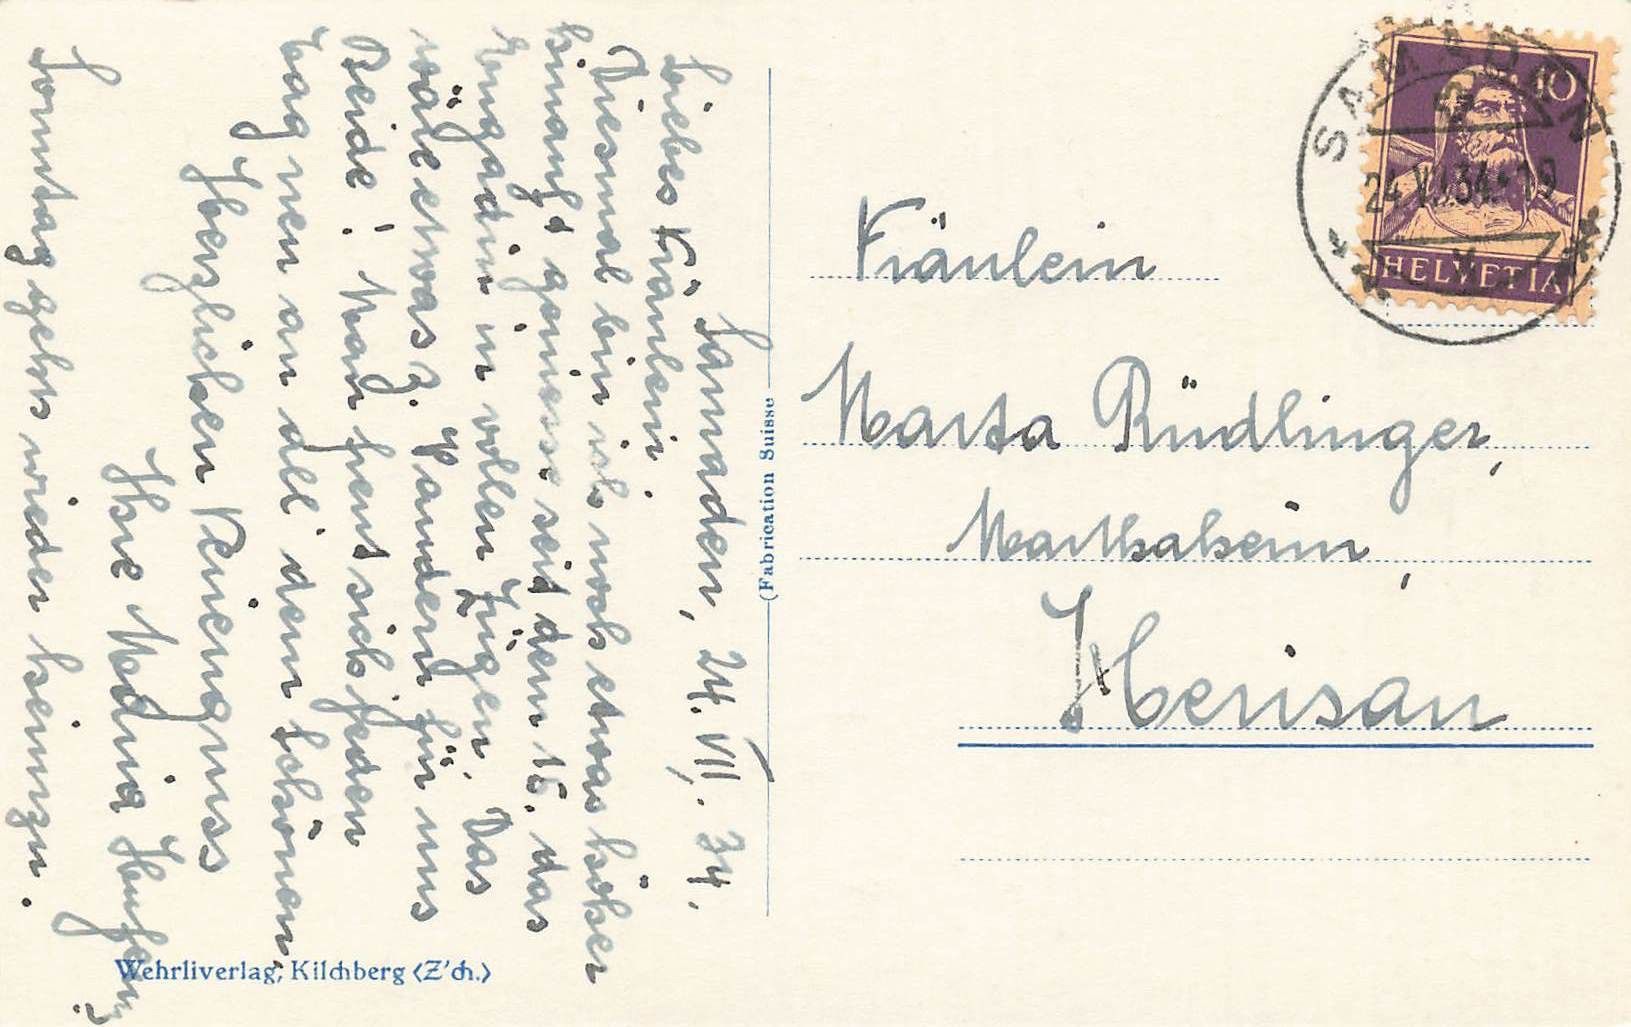 Samaden, 24. VII. 34.
Liebes Fräulein,
Diesmal bin ich noch etwas höher
hinauf & geniesse seit dem 15. das
Engadin in vollen Zügen. Das
wäre etwas z. Wandern für uns
Beide! Man freut sich jeden
Tag neu an all' dem Schönen.
Herzlichen Feriengruss
Ihre
Sonntag gehts wieder heimzu.
Wehrliverlag, Kilchberg (Z'ch.)
(Fabrication Suisse)
Fräulein
Marta Rüdlinger,
Marthaheim,
Herisau
SAMADEN
24.VII.34.19
10
HELVETIA